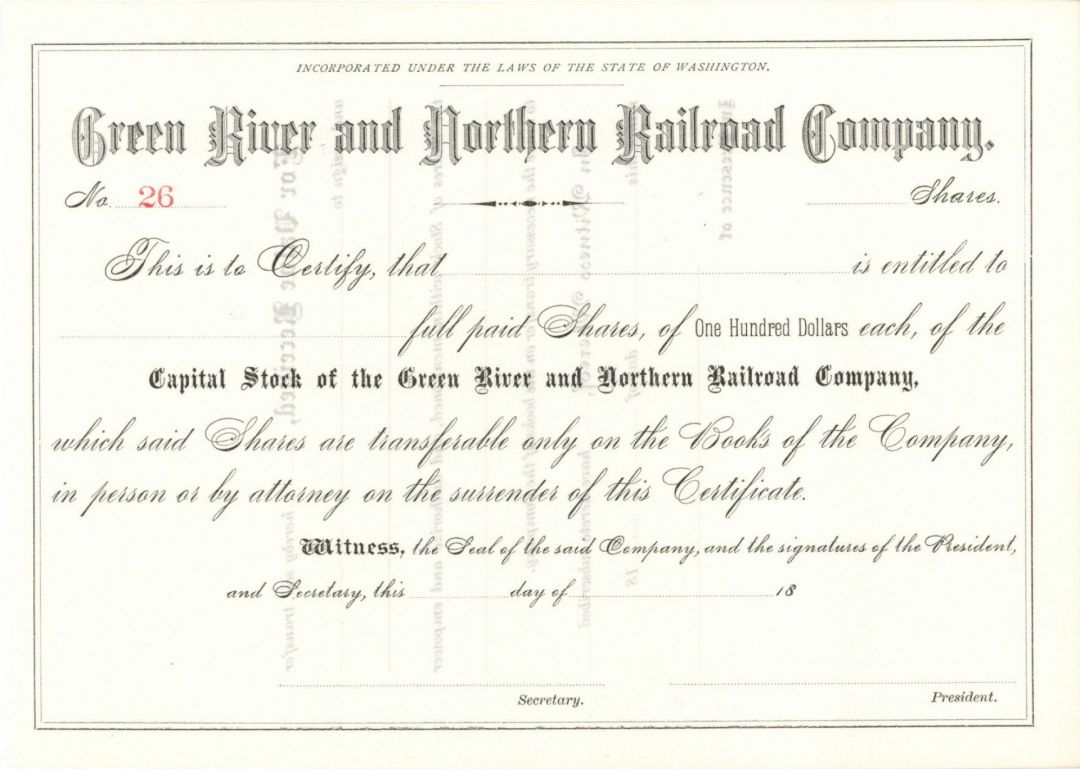 INCORPORATED UNDER THE LAWS OF THE STATE OF WASHINGTON.
Green River and Northern Railroad Company.
No. 26 Shares.
This is to Certify, that is entitled to
full paid Shares, of One Hundred Dollars each, of the
Capital Stock of the Green River and Northern Railroad Company,
which said Shares are transferable only on the Books of the Company,
in person or by attorney on the surrender of this Certificate.
Witness, the Seal of the said Company, and the signatures of the President,
and Secretary, this day of 18
Secretary. President.